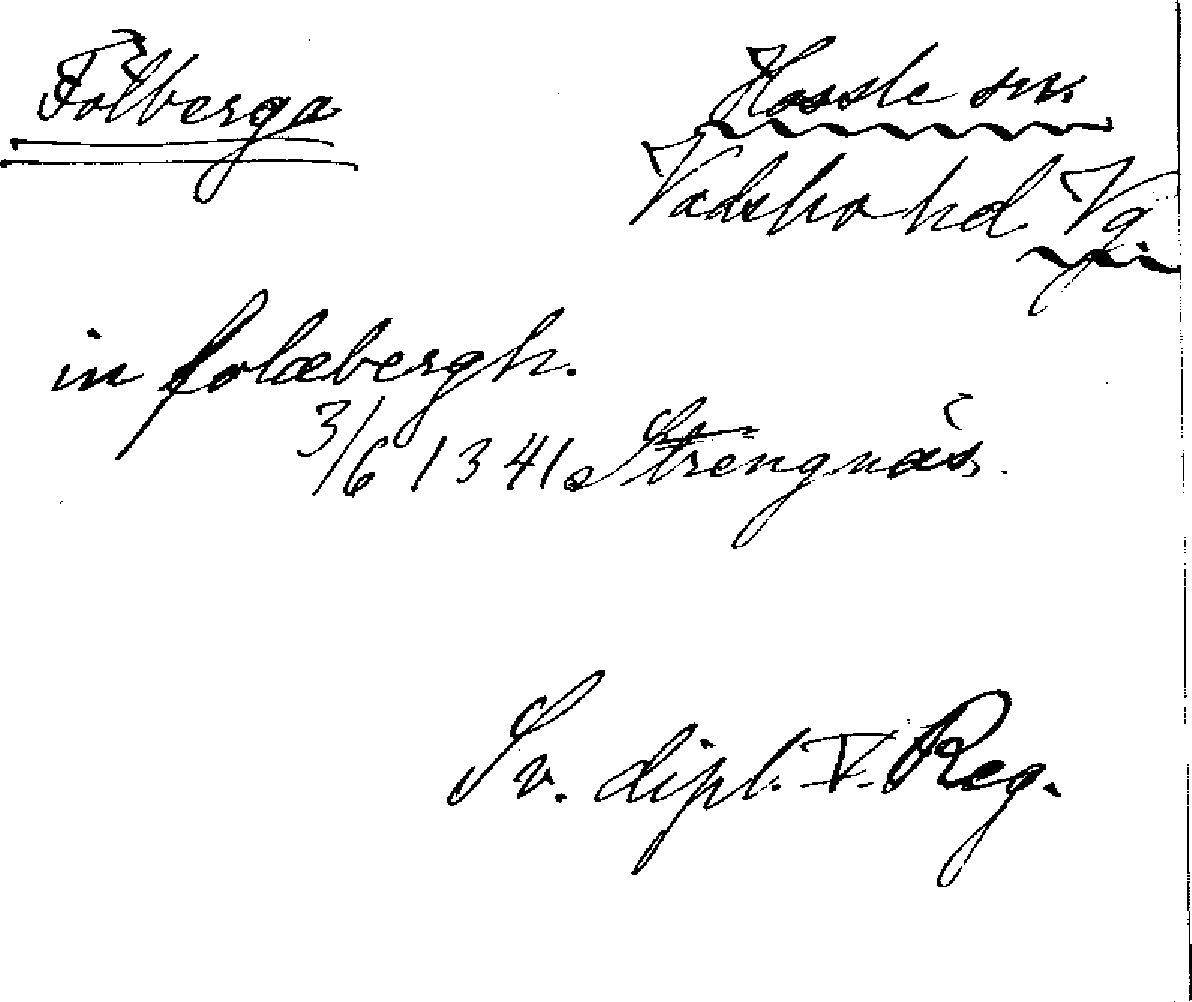 Folberga
Hassle sn.
Vadsbo hd Vg.
in folæbergh.
3/6 1341 Strengnäs.
Sv. dipl. V. Reg.